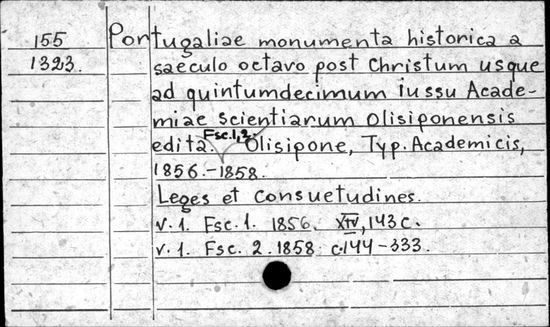 155 Portugaliae monumenta historica a
1323. saeculo octavo post Christum usque
ad quintumdecimum iussu Acade-
miae scientiarum Olisiponensis
edita. Fsc.1,2. Olisipone, Typ. Academicis,
1856.-1858.
Leges et consuetudines.
v. 1. Fsc. 1. 1856. XIV, 143 c.
v. 1. Fsc. 2. 1858. c.144-333.